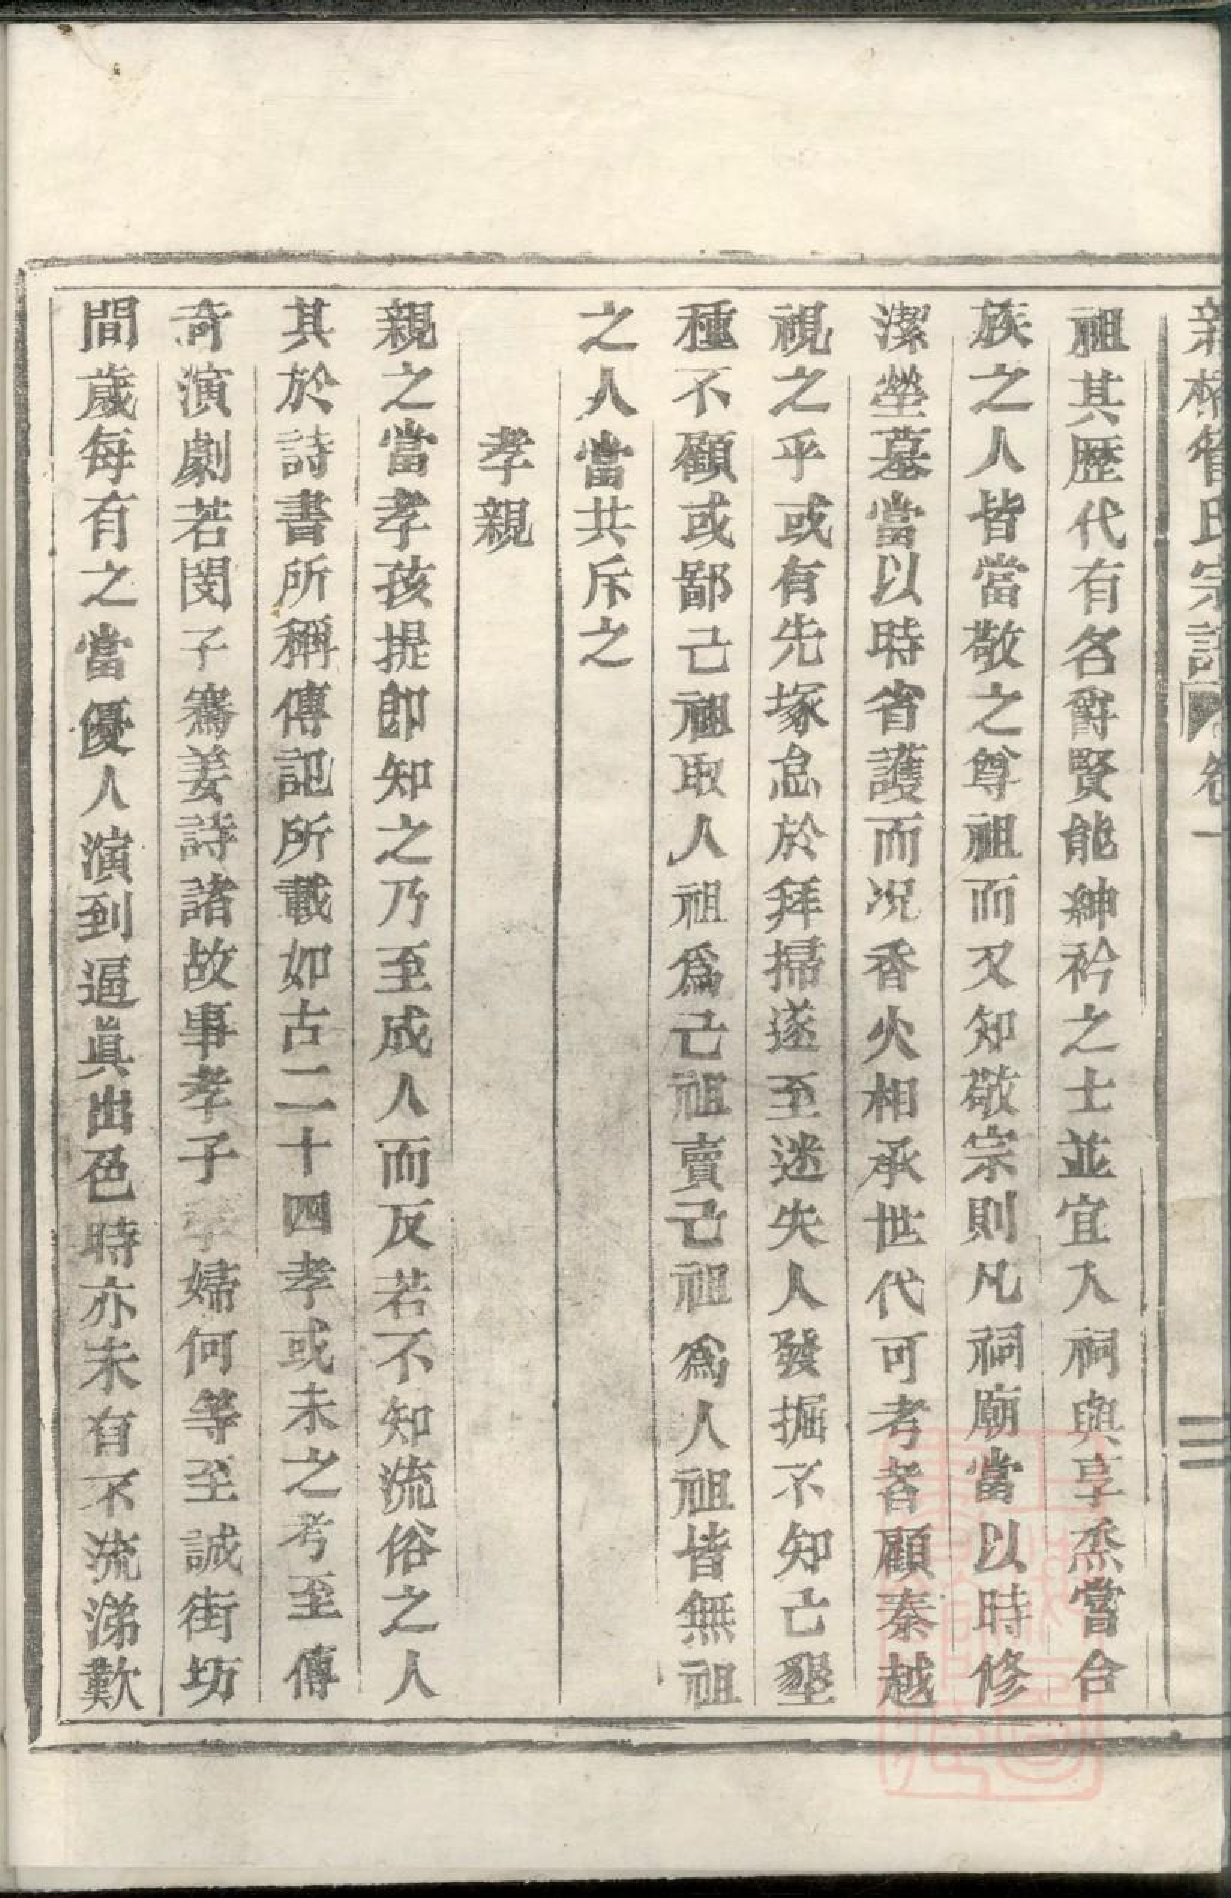 氏宗譜 卷一 二
祖其歷代有名爵賢能紳衿之士並宜入祠與享烝嘗合
族之人皆當敬之尊祖而又知敬宗則凡祠廟當以時修
潔塋墓當以時省護而况香火相承世代可考者顧秦越
視之乎或有先塚怠於拜掃遂至迷失人發掘不知己墾
種不顧或鄙己祖取人祖爲己祖賣己祖爲人祖皆無祖
之人當共斥之
孝親
親之當孝孩提即知之乃至成人而反若不知流俗之人
其於詩書所稱傳記所載如古二十四孝或未之考至傳
奇演劇若閔子騫姜詩諸故事孝子孝婦何等至誠街坊
間歲每有之當優人演到逼眞出色時亦未有不流涕歎